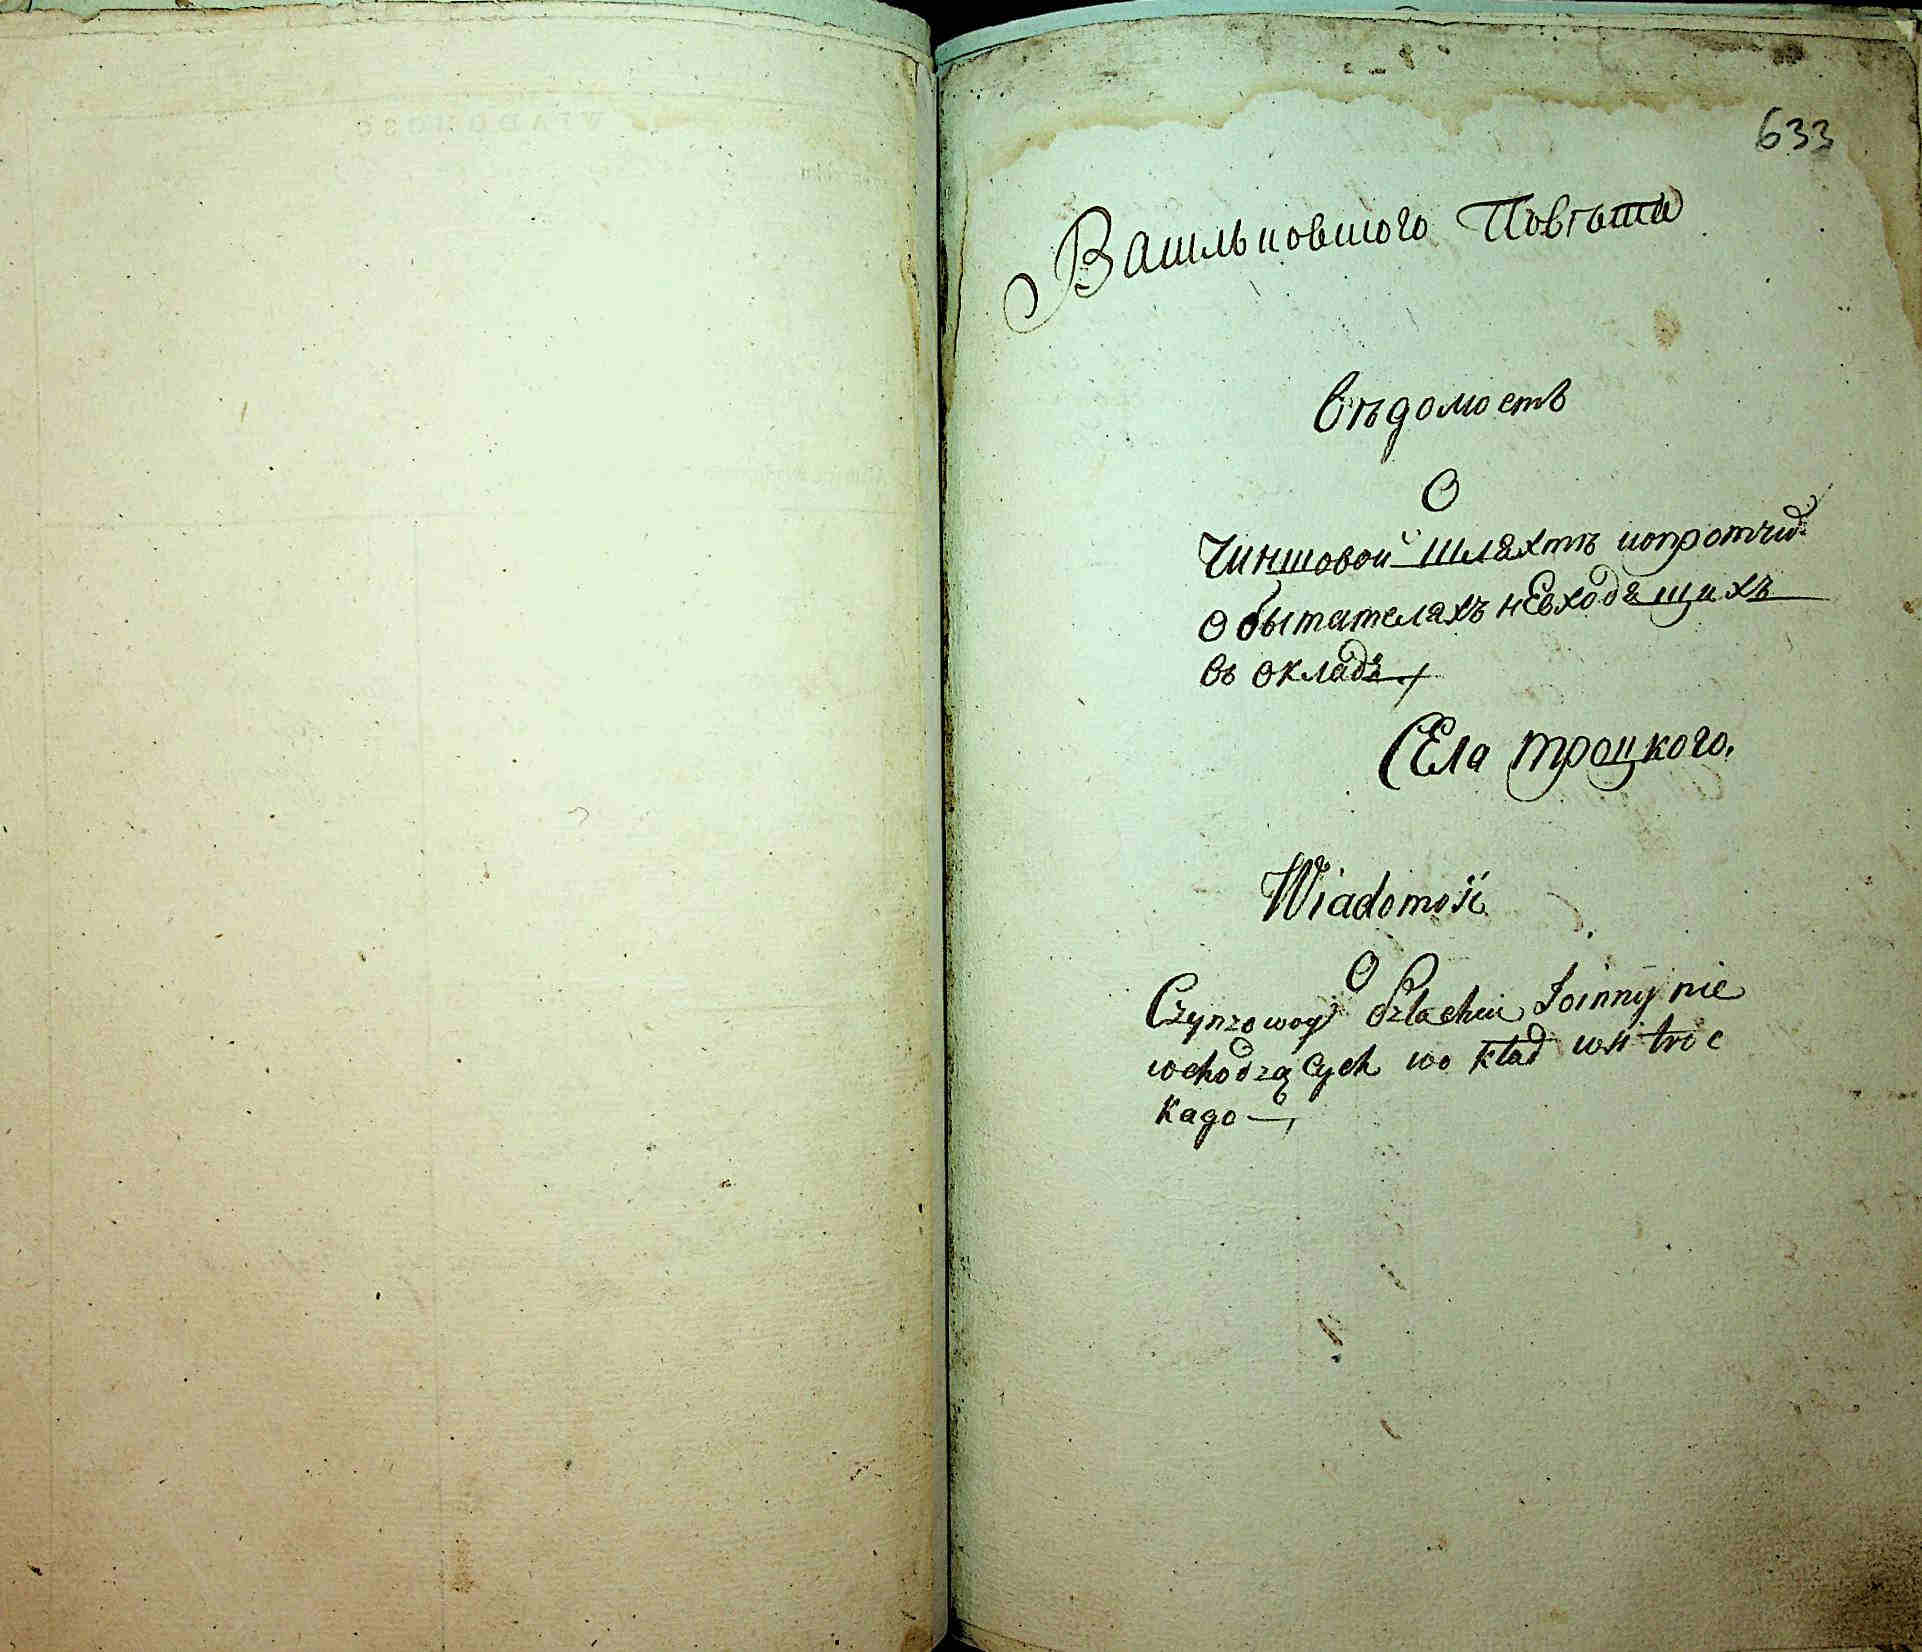 633
Вашльковшого Повѣта
Вѣдомость
О
Чиншовой Шляхтѣ ипротчид.
Обытателяхъ нЕвходящихъ
въ окладъ
СЕла троцкого.
Wiadomość
O
Czynszowey Szlachcie Joinny nie
wchodzących wo kład wsi troc
kago